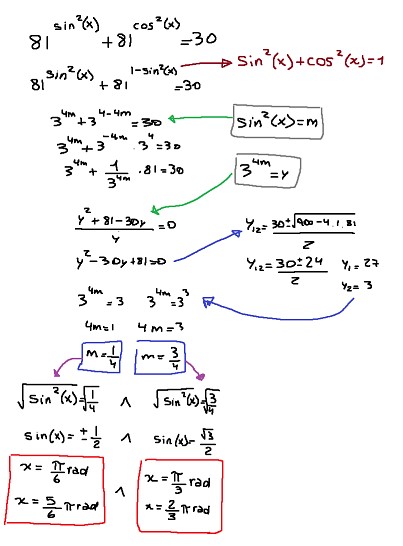 81^sin²(x) + 81^cos²(x) = 30
sin²(x) + cos²(x) = 1
81^sin²(x) + 81^1-sin²(x) = 30
3^4m + 3^4-4m = 30
sin²(x) = m
3^4m + 3^-4m · 3^4 = 30
3^4m + 1/3^4m · 81 = 30
3^4m = y
y² + 81 - 30y / y = 0
y² - 30y + 81 = 0
y₁₂ = 30 ± √900 - 4.1.81 / 2
y₁₂ = 30 ± 24 / 2
y₁ = 27
y₂ = 3
3^4m = 3 3^4m = 3³
4m = 1 4m = 3
m = 1/4 m = 3/4
√sin²(x) = √1/4 ∧ √sin²(x) = √3/4
sin(x) = ± 1/2 ∧ sin(x) = √3/2
x = π/6 rad
x = 5/6 π rad
∧
x = π/3 rad
x = 2/3 π rad